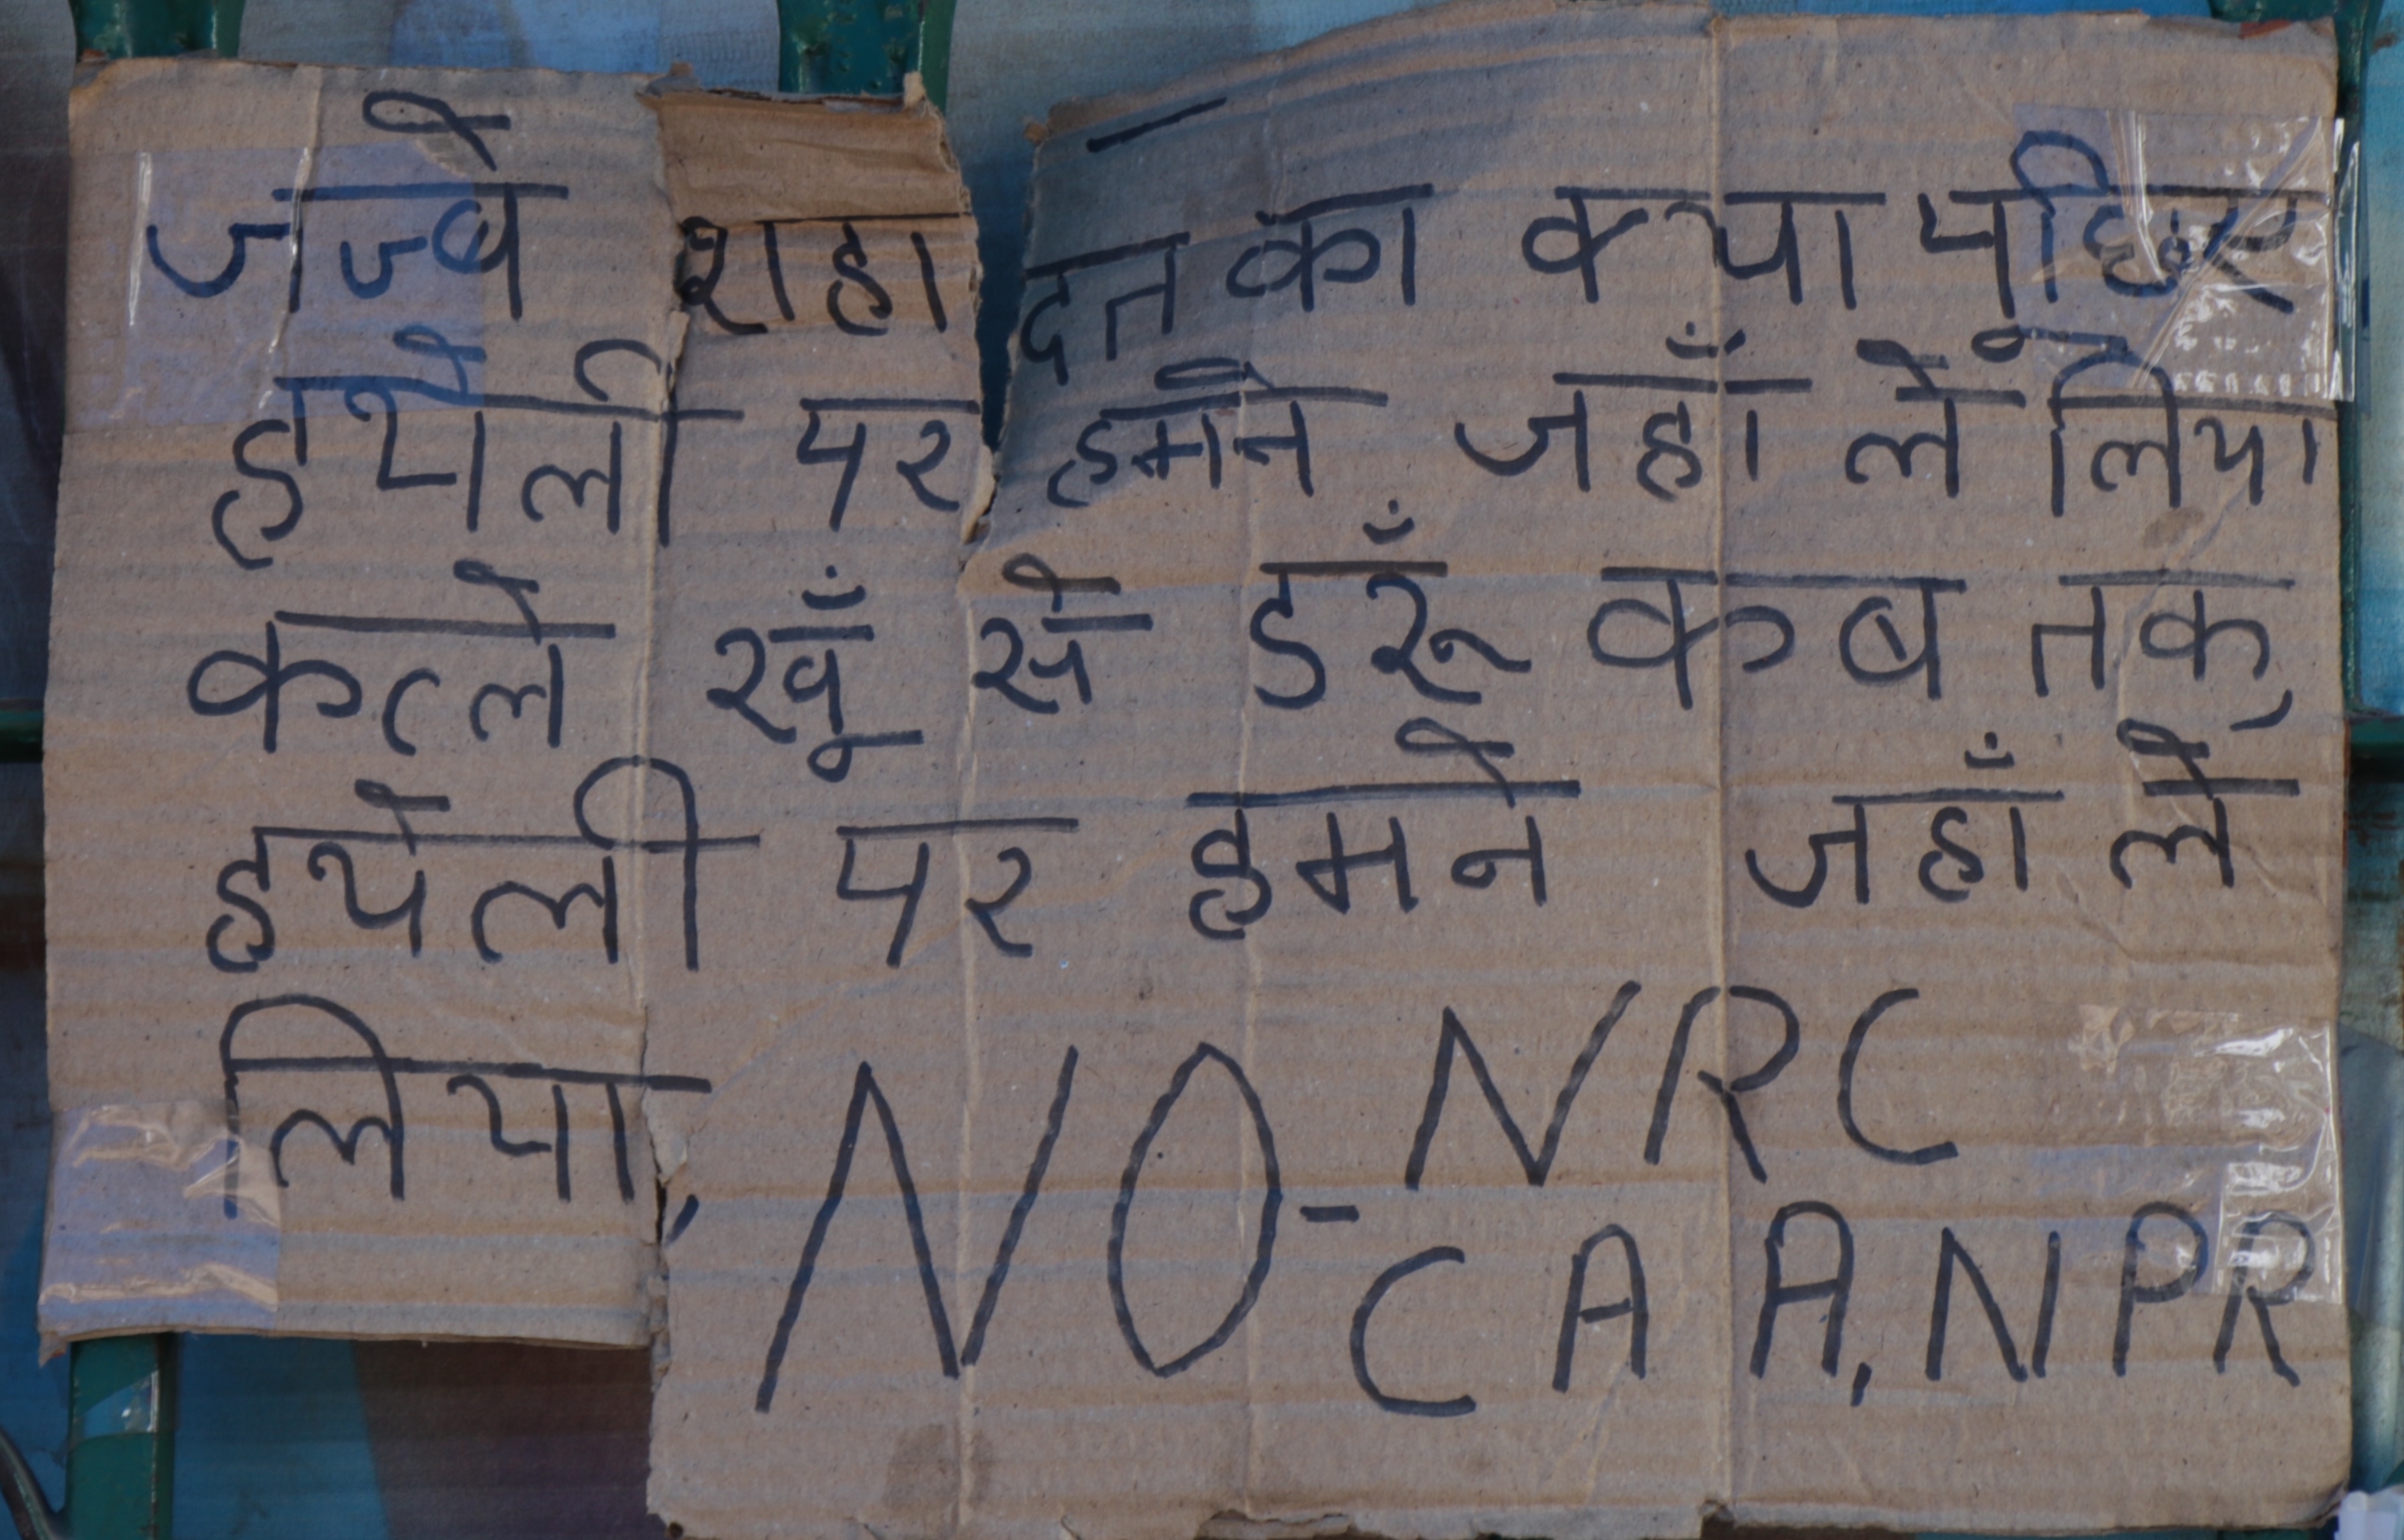 जज्बे शहादत का क्या पूछिए
हथेली पर हमने जहाँ ले लिया
कत्ले खूँ से डरूँ कब तक,
हथेली पर हमने जहाँ ले
लिया, NO - NRC
CAA, NPR